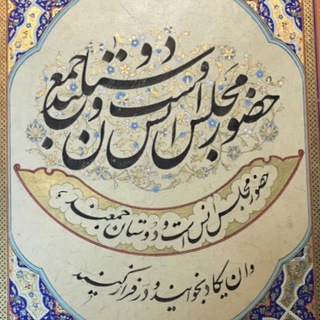 حضور مجلس انس است و دوستان جمعند
حضور مجلس انس است و دوستان جمعند
وان یکاد بخوانید و در فراز کنید